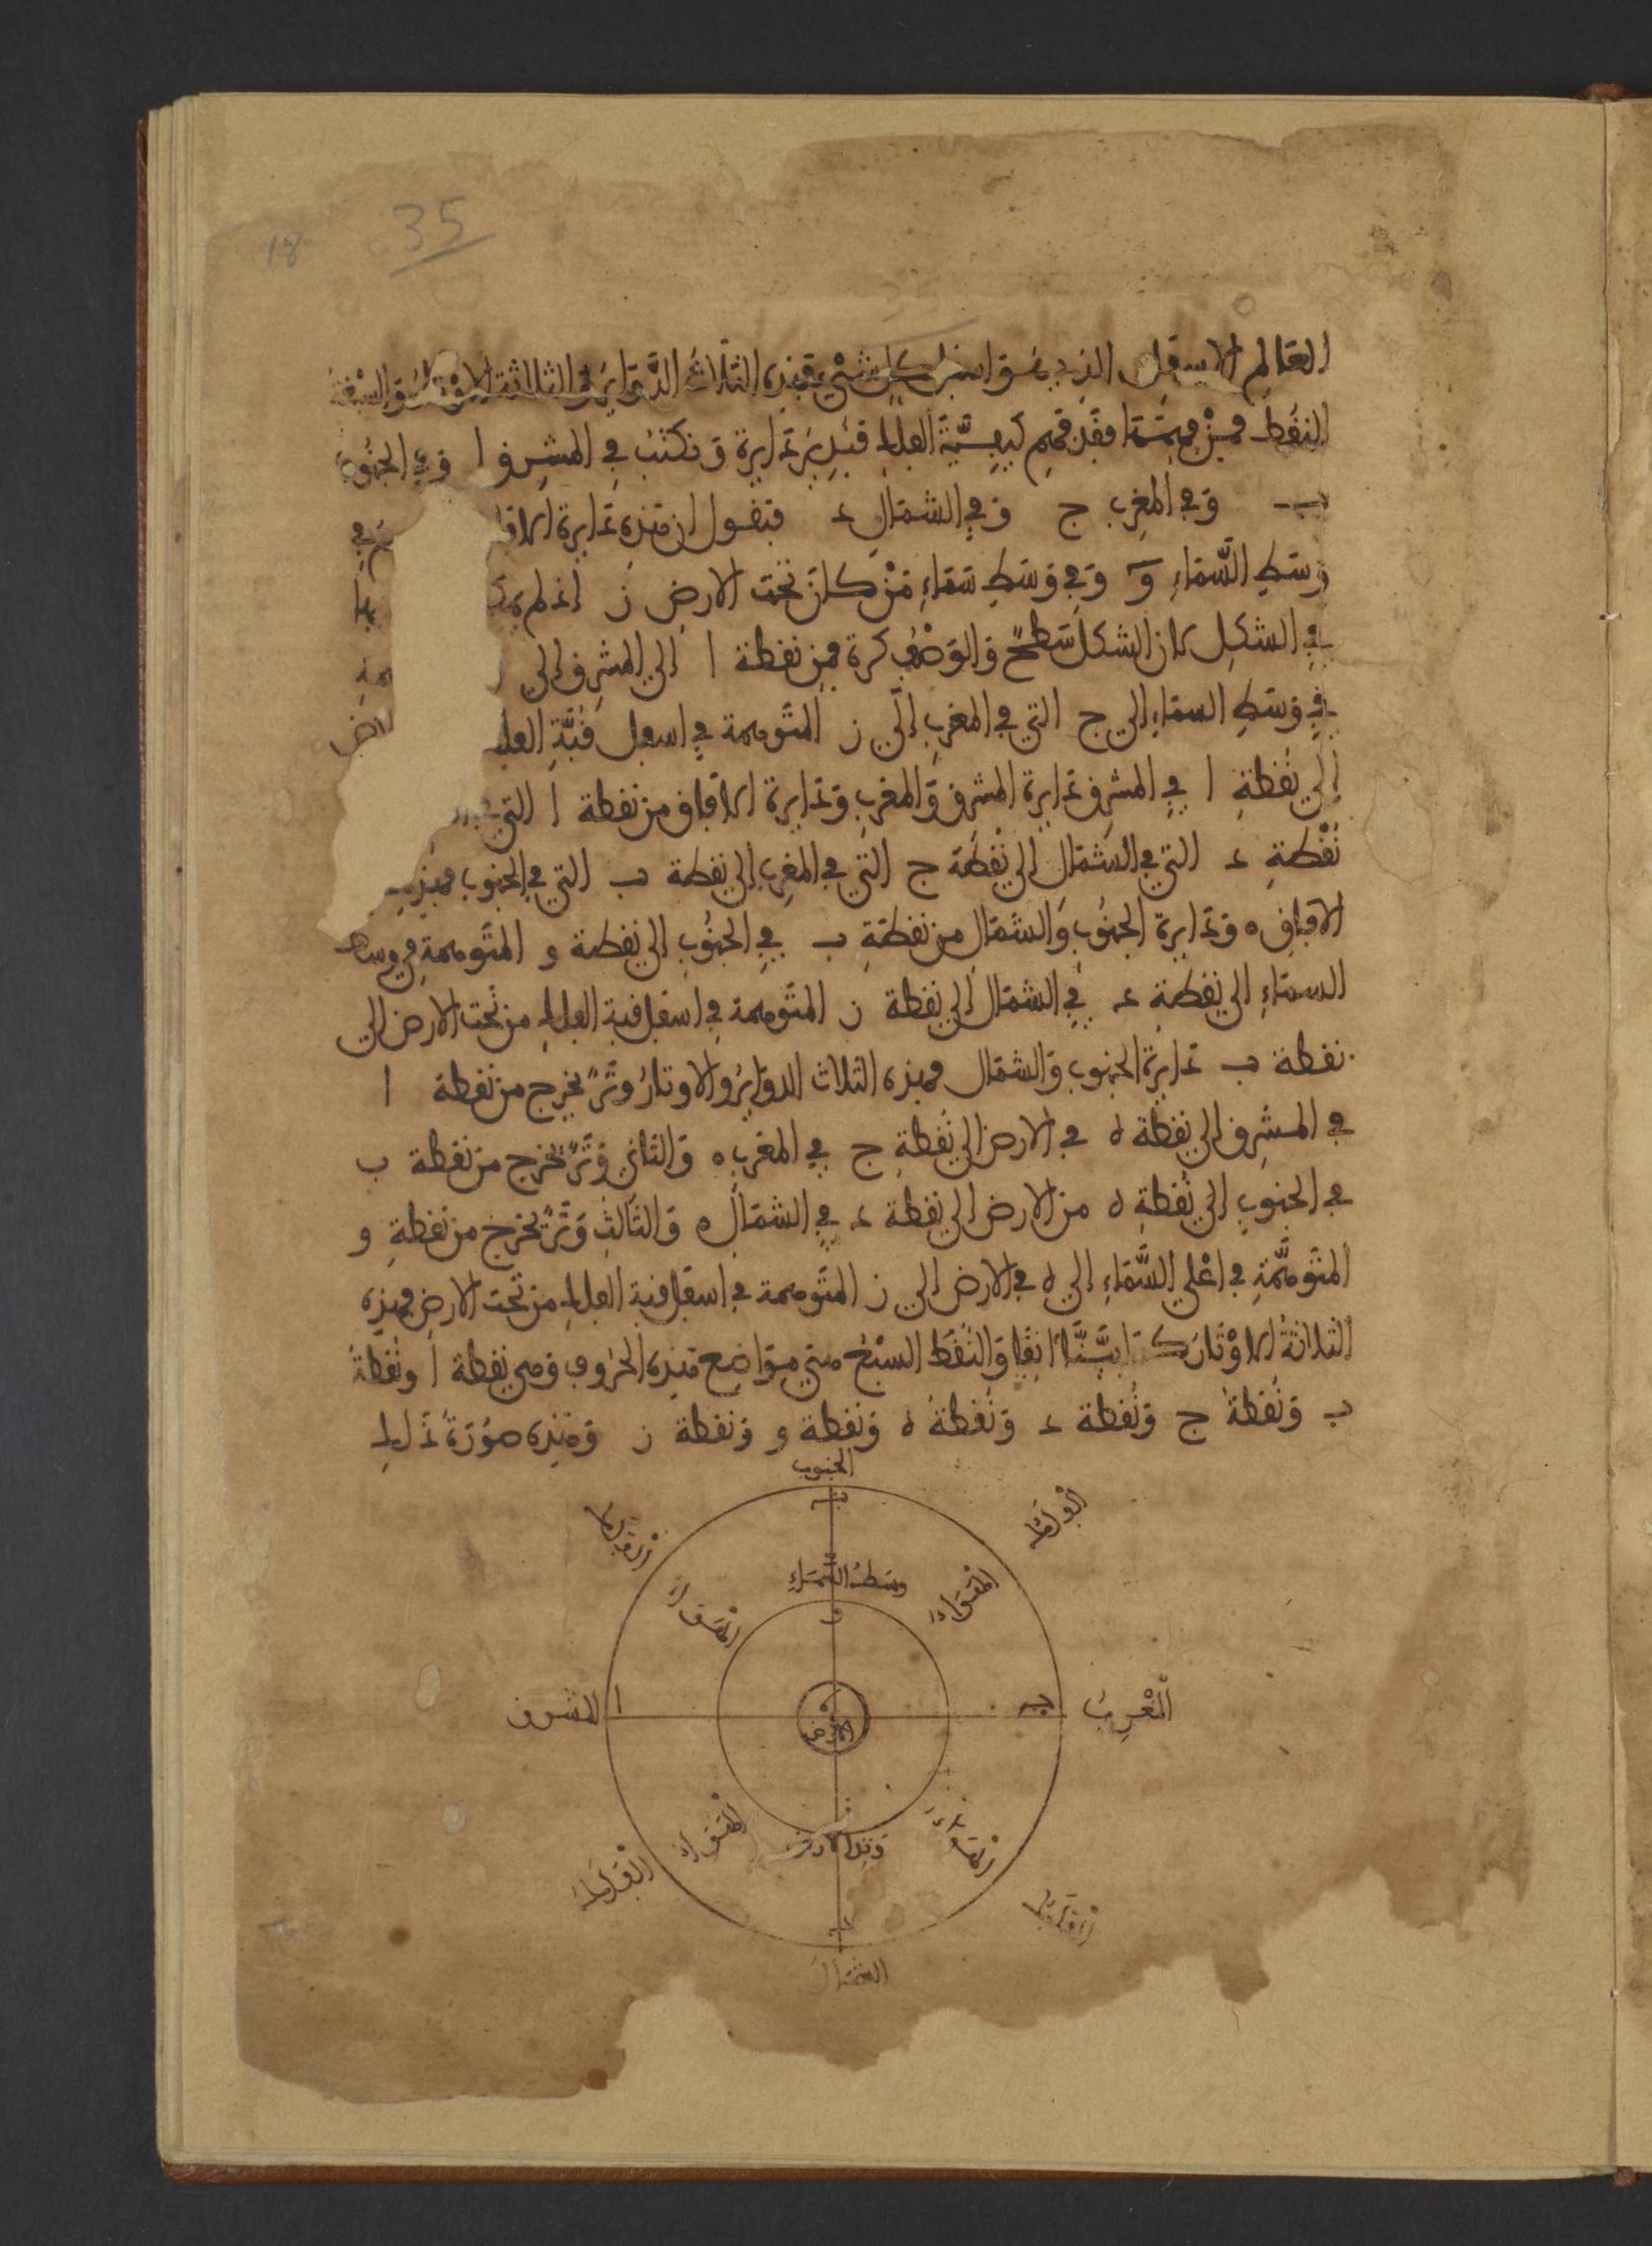 35
18
العالم الاسفل الذي هو اسفل كل شيء فهذه الثلاث الدواير والثلاثة الاوتار والسبعة
النقط فمن فهمها فقد فهم كيفية الفلك فندير دايرة ونكتب في المشرق ا وفي الجنوب
ب وفي المغرب ج وفي الشمال د فنقول ان هذه دايرة الافاق في
وسط السماء و وفي وسط سماء من كان تحت الارض ز اذ لم
في الشكل لان الشكل سطح والوضع كرة فمن نقطة ا الى المشرق الى
في وسط السماء الى ج التي في المغرب الى ز المتوهمة في اسفل قبة الفلك
الى نقطة ا في المشرق دايرة المشرق والمغرب ودايرة الافاق من نقطة ا التي
نقطة د التي في الشمال الى نقطة ج التي في المغرب الى نقطة ب التي في الجنوب فهذه
الافاق ه ودايرة الجنوب والشمال من نقطة ب في الجنوب الى نقطة و المتوهمة في وسط
السماء الى نقطة د في الشمال الى نقطة ز المتوهمة في اسفل قبة الفلك من تحت الارض الى
نقطة ب دايرة الجنوب والشمال فهذه الثلاث الدواير والاوتار وتر يخرج من نقطة ا
في المشرق الى نقطة ه في الارض الى نقطة ج في المغرب ه والثاني وتر يخرج من نقطة ب
في الجنوب الى نقطة ه من الارض الى نقطة د في الشمال ه والثالث وتر يخرج من نقطة و
المتوهمة في اعلى السماء الى ه في الارض الى ز المتوهمة في اسفل قبة الفلك من تحت الارض فهذه
الثلاثة الاوتار كما بينا انفا والنقط السبع هي مواضع هذه الحروف وهي نقطة ا ونقطة
ب ونقطة ج ونقطة د ونقطة ه ونقطة و ونقطة ز وهذه صورة ذلك
الجنوب
ب
وسط السماء
و
المشرق
ا
ه
الارض
ج
المغرب
ز
وتد الارض
د
الشمال